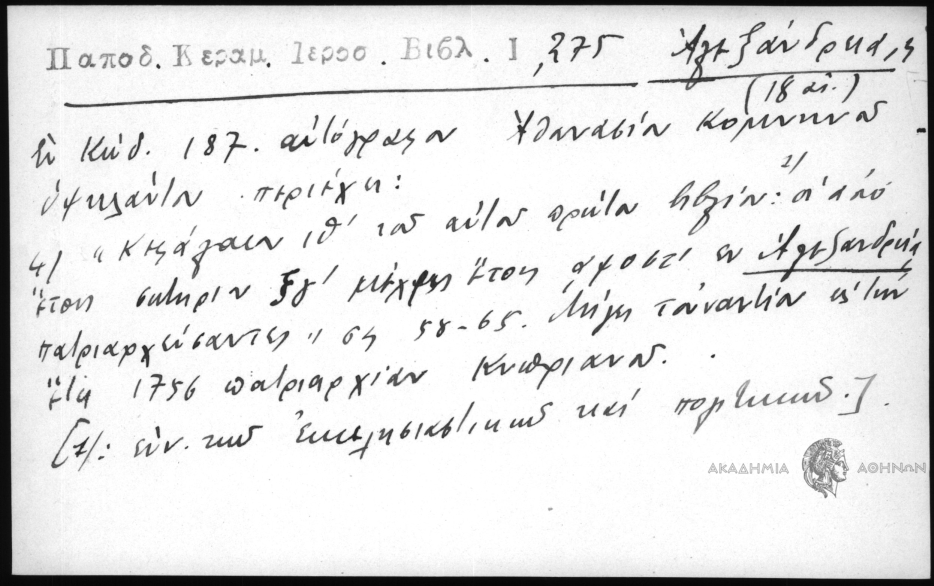 Παποδ. Κεραμ. Ιεροσ. Βιβλ. Ι, 275 Ἀλεξάνδρεια, η
(18 αἰ.)
Ἐν Κώδ. 187. αὐτόγραφον Ἀθανασίου Κομνηνοῦ
Ὑψηλάντου περιέχει:
4/ "Κεφάλαιον ιθ' τοῦ αὐτοῦ πρώτου βιβλίου: 1/ οἱ ἀπὸ
ἔτους σωτηρίου ξγ' μέχρις ἔτους ͵αψοστ' ἐν Ἀλεξανδρείᾳ
πατριαρχεύσαντες" σς 58-65. Λήγει τοὐναντίον εἰς τὴν
ἔτει 1756 πατριαρχίαν Κυπριανοῦ.
[1/: ἐνν. τῶν Ἐκκλησιαστικῶν καὶ πολιτικῶν.]
ΑΚΑΔΗΜΙΑ ΑΘΗΝΩΝ